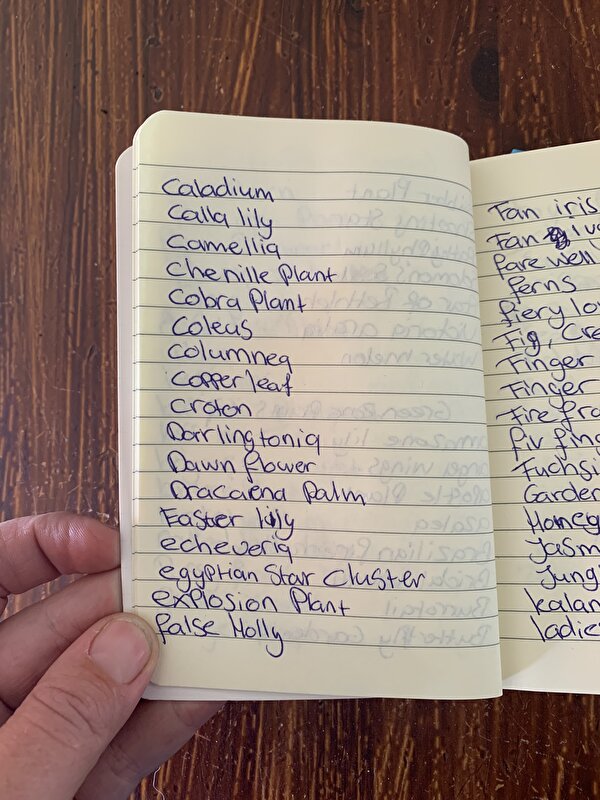 Caladium
Calla lily
Camellia
Chenille Plant
Cobra Plant
Coleus
Columnea
Copperleaf
Croton
Darrlingtonia
Dawn flower
Dracaena Palm
Easter lily
echeveria
egyptian Star Cluster
explosion Plant
false Holly
Fan iris
Fan
farewell
ferns
fiery
Fig,
Finger
Finger
Fire
Fuchsi
Garden
Honey
Jasm
Jung
kalan
ladie